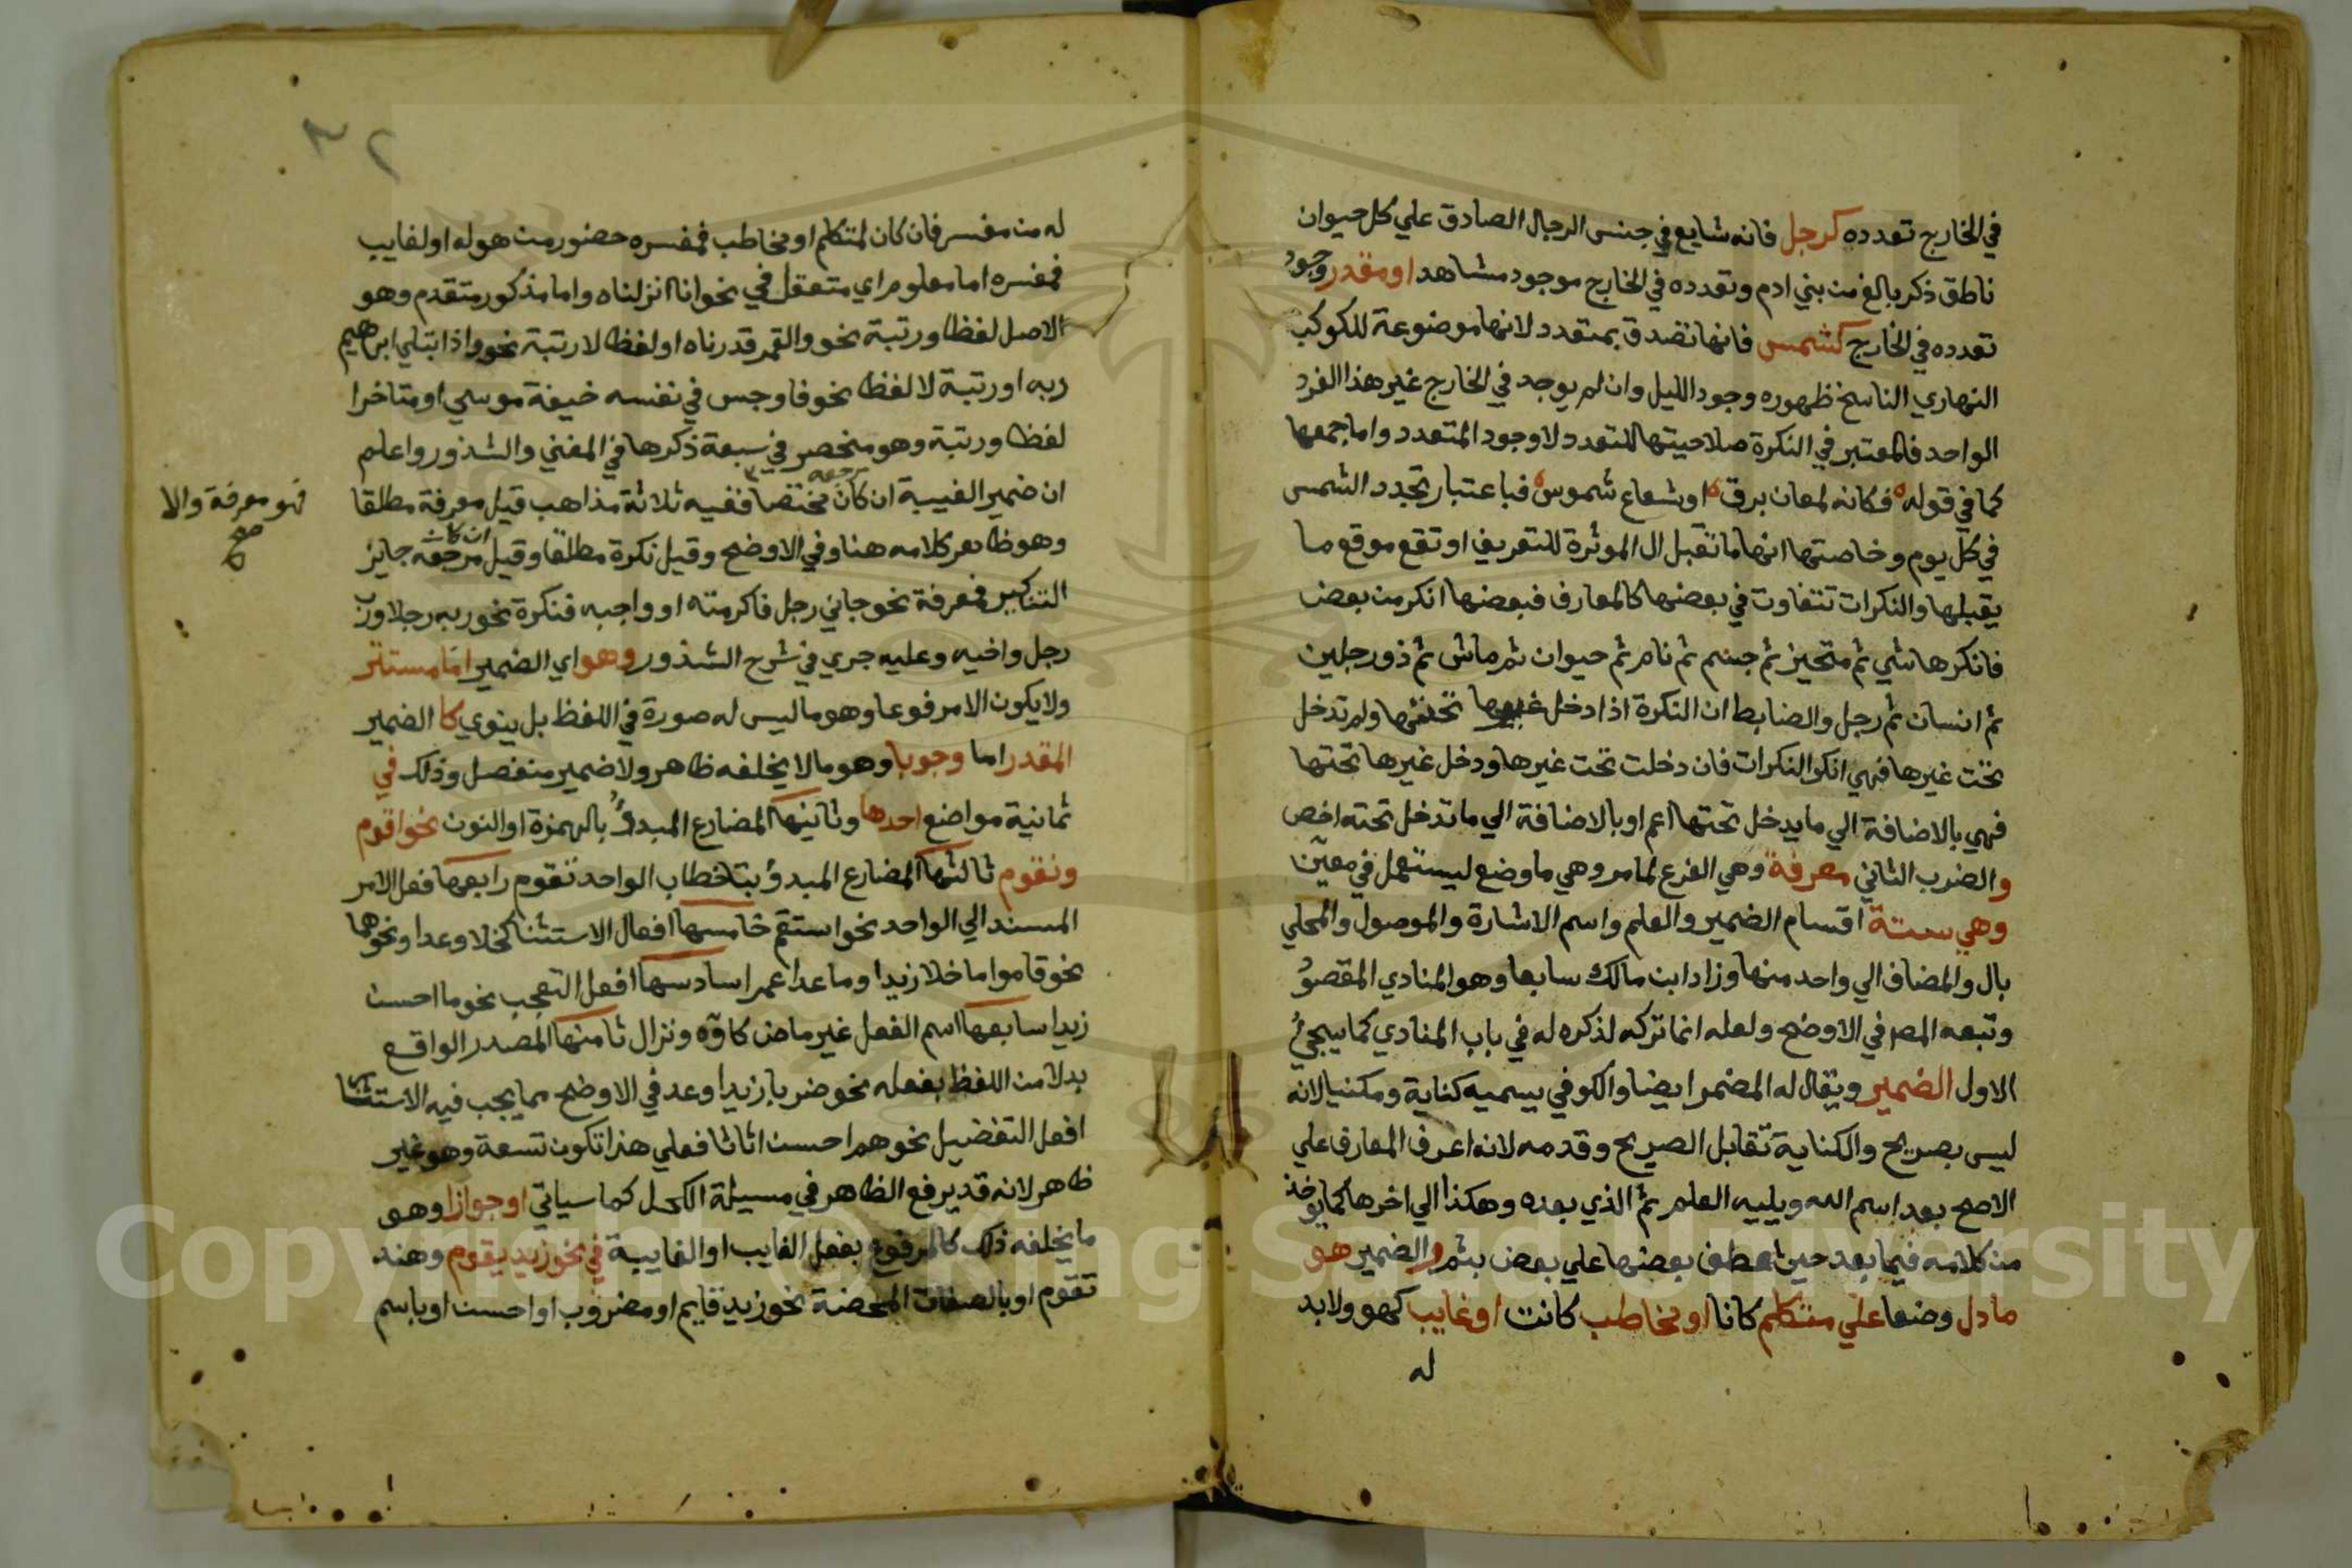 في الخارج تعدده كرجل فانه شايع في جنس الرجال الصادق علي كل حيوان
ناطق ذكر بالغ من بني ادم وتعدده في الخارج موجود مشاهد او مقدر وجود
تعدده في الخارج كشمس فانها تصدق بمتعدد لانها موضوعة للكوكب
النهاري الناسخ ظهوره وجود الليل وان لم يوجد في الخارج غير هذا الفرد
الواحد فالمعتبر في النكرة صلاحيتها للتعدد لا وجود المتعدد واما جمعها
كما في قوله فكانه لمعان برق او شعاع شموس فباعتبار تجدد الشمس
في كل يوم وخاصتها انها ما تقبل ال الموثرة للتعريف او تقع موقع ما
يقبلها والنكرات تتفاوت في بعضها كالمعارف فبعضها انكر من بعض
فانكرها شي ثم متحيز ثم جسم ثم نام ثم حيوان ثم ماش ثم ذو رجلين
ثم انسان ثم رجل والضابط ان النكرة اذا دخل غيرها تحتها ولم تدخل
تحت غيرها فهي انكر النكرات فان دخلت تحت غيرها ودخل غيرها تحتها
فهي بالاضافة الي ما يدخل تحتها اعم او بالاضافة الي ما تدخل تحته اخص
والضرب الثاني معرفة وهي الفرع لما مر وهي ما وضع ليستعمل في معين
وهي ستة اقسام الضمير والعلم واسم الاشارة والموصول والمحلي
بال والمضاف الي واحد منها وزاد ابن مالك سابعا وهو المنادي المقصو
وتبعه المص في الاوضح ولعله انما تركه لذكره له في باب المنادي كما سيجئ
الاول الضمير ويقال له المضمر ايضا والكوفي يسميه كناية ومكنيا لانه
ليس بصريح والكناية تقابل الصريح وقدمه لانه اعرف المعارف علي
الاصح بعد اسم الله ويليه العلم ثم الذي بعده وهكذا الي اخرها كما يوخذ
من كلامه فيما بعد حين عطف بعضها علي بعض بثم والضمير هو
ما دل وضعا علي متكلم كانا او مخاطب كانت او غايب كهو ولا بد
له
٣٢
له من مفسر فان كان لمتكلم او مخاطب فمفسره حضور من هو له او لغايب
فمفسره اما معلوم اي متعقل في نحو انا انزلناه واما مذكور متقدم وهو
الاصل لفظا ورتبة نحو والقمر قدرناه او لفظا لا رتبة نحو واذ ابتلي ابراهيم
ربه او رتبة لا لفظا نحو فاوجس في نفسه خيفة موسي او متاخرا
لفظا ورتبة وهو منحصر في سبعة ذكرها في المغني والشذور واعلم
ان ضمير الغيبة ان كان مرجعه مختصا ففيه ثلاثة مذاهب قيل معرفة مطلقا
فهو معرفة والا
صح
وهو ظاهر كلامه هنا وفي الاوضح وقيل نكرة مطلقا وقيل ان كان مرجعه جايز
التنكير فمعرفة نحو جاني رجل فاكرمته او واجبه فنكرة نحو ربه رجلا ورب
رجل واخيه وعليه جري في شرح الشذور وهو اي الضمير اما مستتر
ولا يكون الا مرفوعا وهو ما ليس له صورة في اللفظ بل ينوي كا الضمير
المقدر اما وجوبا وهو ما لا يخلفه ظاهر ولا ضمير منفصل وذلك في
ثمانية مواضع احدها وثانيها المضارع المبدؤ بالهمزة او النون نحو اقوم
ونقوم ثالثها المضارع المبدؤ بتا خطاب الواحد تقوم رابعها فعل الامر
المسند الي الواحد نحو استقم خامسها افعال الاستثنا كخلا وعدا ونحوهما
نحو قاموا ما خلا زيدا وما عدا عمرا سادسها افعل التعجب نحو ما احسن
زيدا سابعها اسم الفعل غير ماض كاوه ونزال ثامنها المصدر الواقع
بدلا من اللفظ بفعله نحو ضربا زيدا وعد في الاوضح مما يجب فيه الاستتار
افعل التفضيل نحو هم احسن اثاثا فعلي هذا تكون تسعة وهو غير
ظاهر لانه قد يرفع الظاهر في مسيلة الكحل كما سياتي او جوازا وهو
ما يخلفه ذلك كالمرفوع بفعل الغايب او الغايبة في نحو زيد يقوم وهند
تقوم او بالصفات المحضة نحو زيد قايم او مضروب او احسن او باسم
Copyright © King Saud University